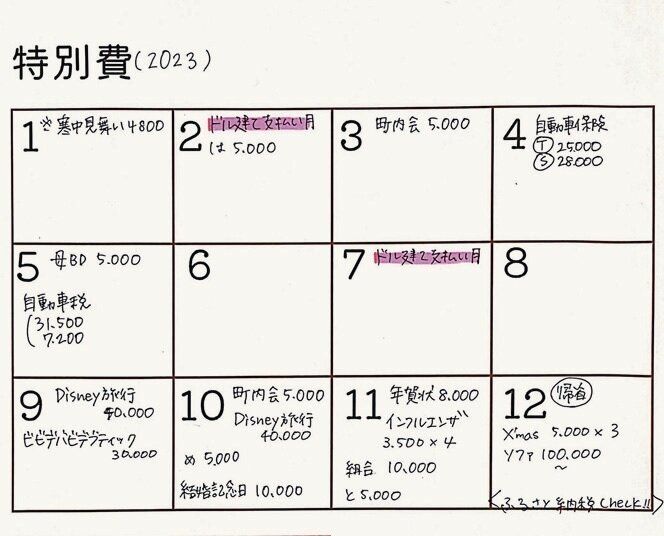 特別費(2023)
1 寒中見舞い 4800
2 ドル建て支払い月
は 5.000
3 町内会 5.000
4 自動車保険
Ⓣ 25.000
Ⓢ 28.000
5 母BD 5.000
自動車税
31.500
7.200
6
7 ドル建て支払い月
8
9 Disney旅行
40.000
ビビデバビデブティック
30.000
10 町内会 5.000
Disney旅行
40.000
め 5.000
結婚記念日 10.000
11 年賀状 8.000
インフルエンザ
3.500×4
組合 10.000
と 5.000
12 帰省
X'mas 5.000×3
Yファ 100.000
～
<ふるさと納税 Check!!>